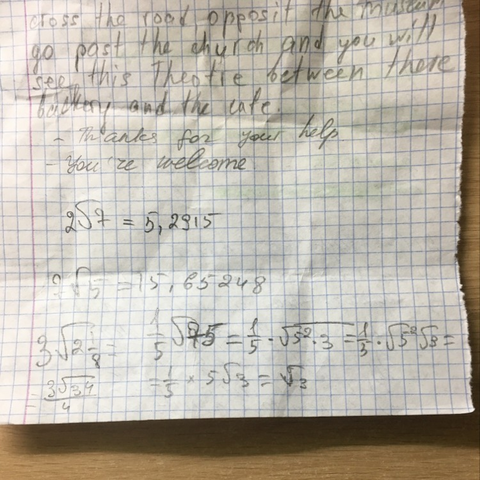 cross the road opposit the museum
go past the church and you will
see this Theatre between there
bakery and the cafe.
- Thanks for your help
- You're welcome
2√7 = 5,2915
7√5 = 15,65248
3√2 1/8 = 1/5 √75 = 1/5 · √5² · 3 = 1/5 · √5² √3 =
= 3√34/4 = 1/5 × 5√3 = √3